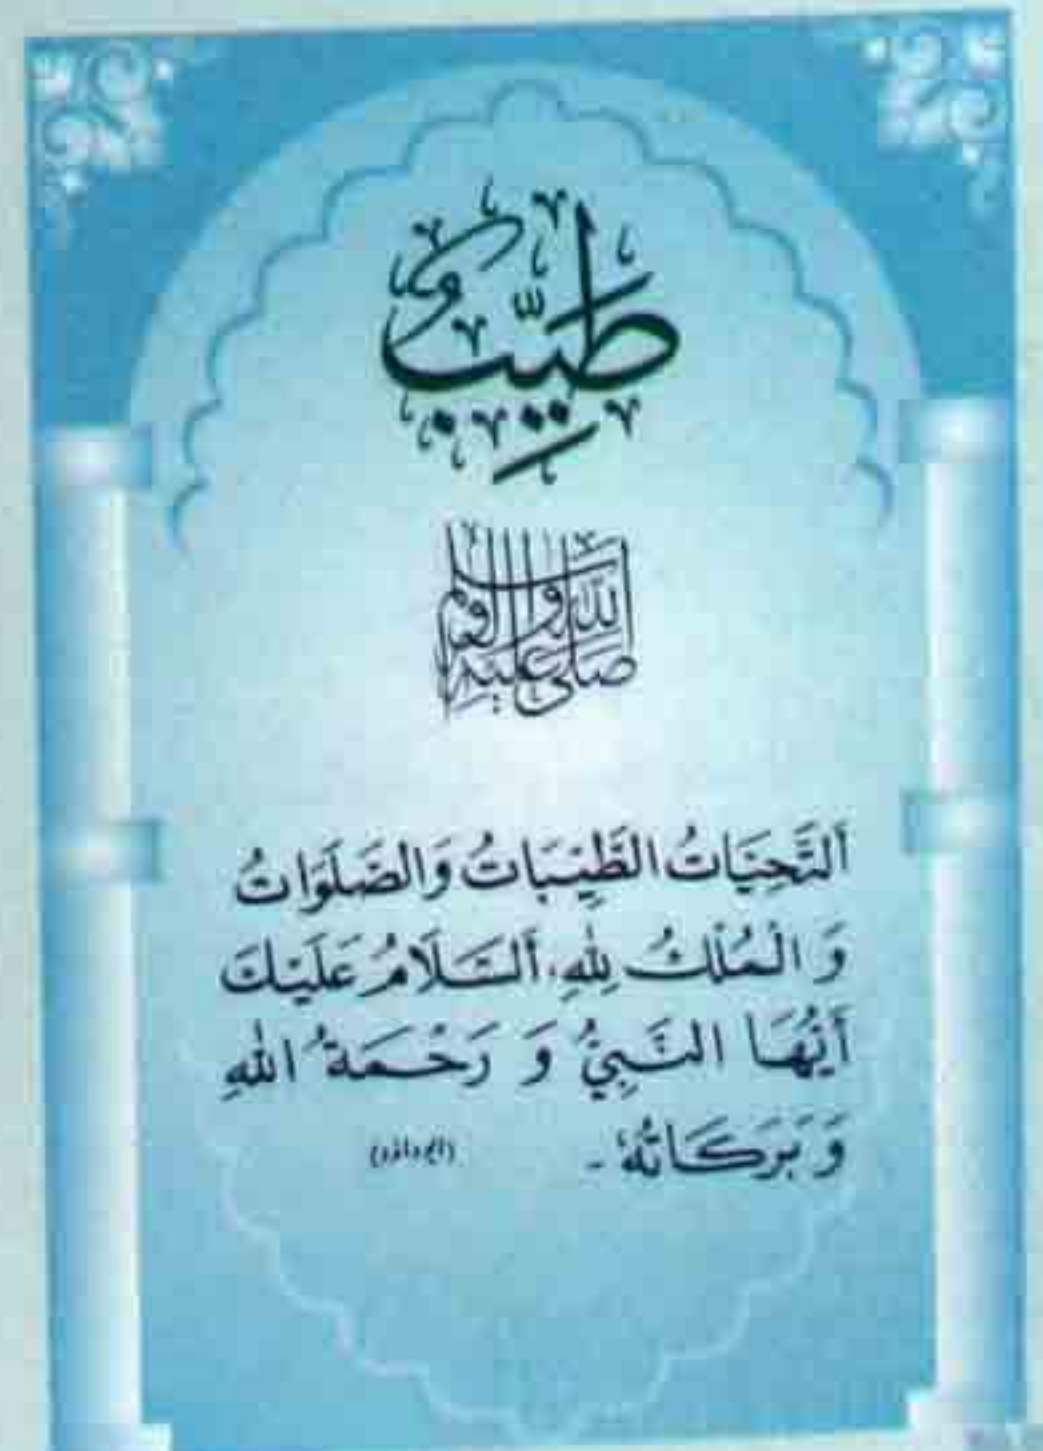 طَيِّبٌ
صَلَّى اللهُ عَلَيْهِ وَآلِهِ وَسَلَّم
اَلتَّحِيَّاتُ الطَّيِّبَاتُ وَالصَّلَوَاتُ
وَ الْمُلْكُ لِلّٰهِ، اَلسَّلَامُ عَلَيْكَ
أَيُّهَا النَّبِيُّ وَ رَحْمَةُ اللهِ
وَ بَرَكَاتُهٗ۔ (ابو داؤد)